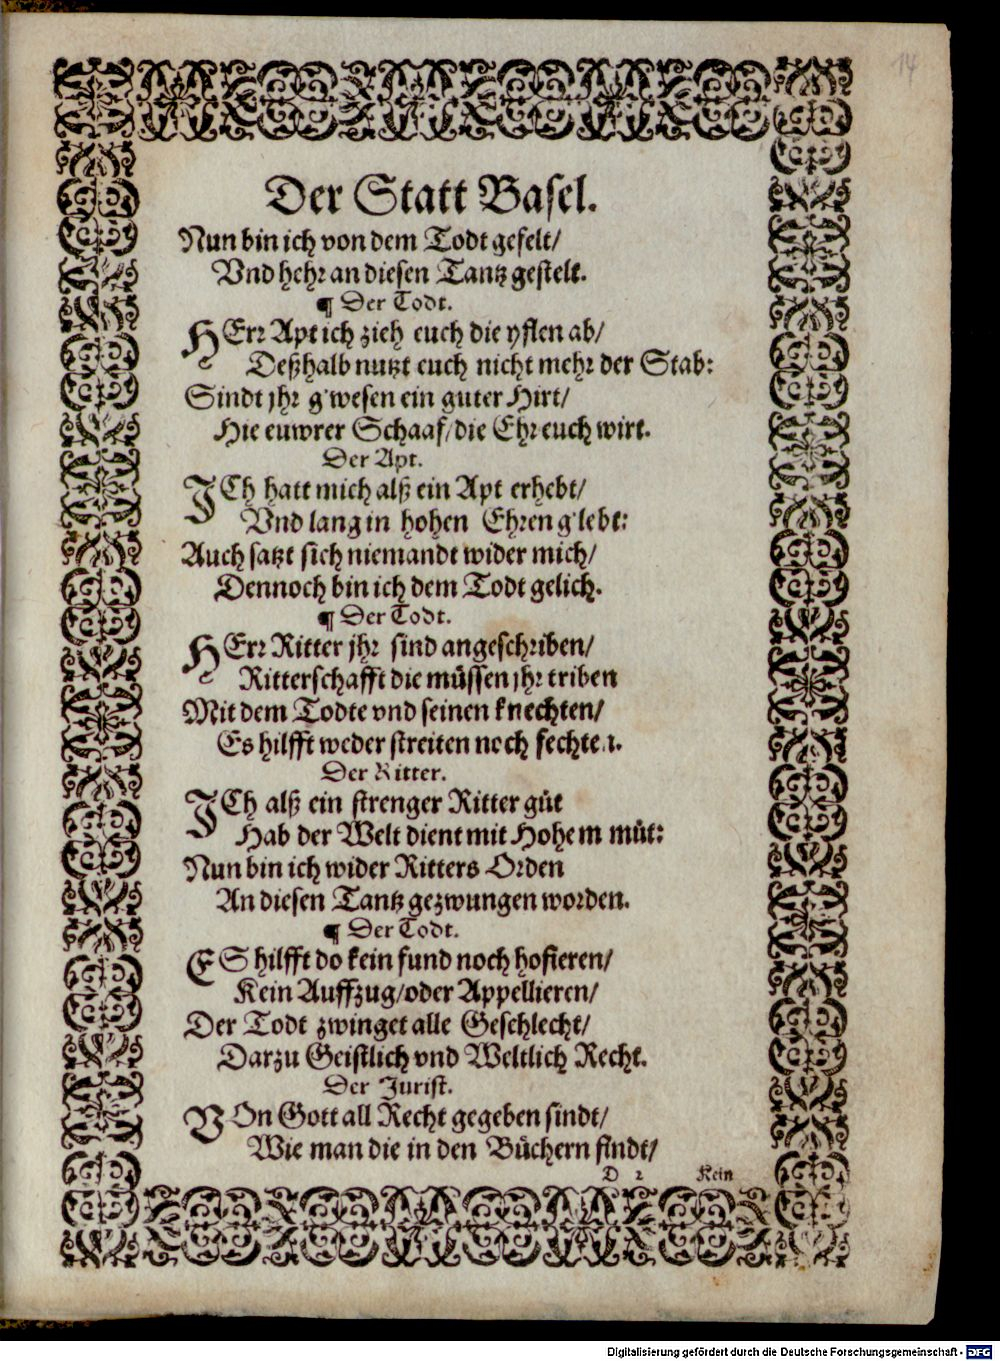 14
Der Statt Basel.
Nun bin ich von dem Todt gefelt/
Vnd hehr an diesen Tantz gestelt.
¶ Der Todt.
HErr Apt ich zieh euch die yflen ab/
Deßhalb nutzt euch nicht mehr der Stab:
Sindt jhr g'wesen ein guter Hirt/
Hie euwrer Schaaf/die Ehr euch wirt.
Der Apt.
ICh hatt mich alß ein Apt erhebt/
Vnd lang in hohen Ehren g'lebt:
Auch satzt sich niemandt wider mich/
Dennoch bin ich dem Todt gelich.
¶ Der Todt.
HErr Ritter jhr sind angeschriben/
Ritterschafft die müssen jhr triben
Mit dem Todte vnd seinen knechten/
Es hilfft weder streiten noch fechten.
Der Ritter.
ICh alß ein strenger Ritter gůt
Hab der Welt dient mit Hohem můt:
Nun bin ich wider Ritters Orden
An diesen Tantz gezwungen worden.
¶ Der Todt.
ES hilfft do kein fund noch hofieren/
Kein Auffzug/oder Appellieren/
Der Todt zwinget alle Geschlecht/
Darzu Geistlich vnd Weltlich Recht.
Der Jurist.
VOn Gott all Recht gegeben sindt/
Wie man die in den Büchern findt/
D 2 Kein
Digitalisierung gefördert durch die Deutsche Forschungsgemeinschaft - DFG